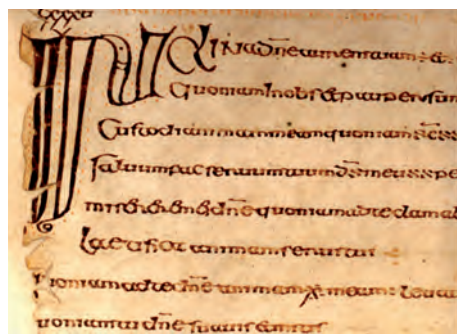 INCLINA dne aurem tuam &
quoniam inobs & pauper sum
Custodi animam meam quoniam
saluum fac seruum tuum ds meus spe
dne quoniam ad te clamab
Laetifica animam serui tui
uoniam ad te dne animam meam leua
uoniam tu dne suauis & mitis